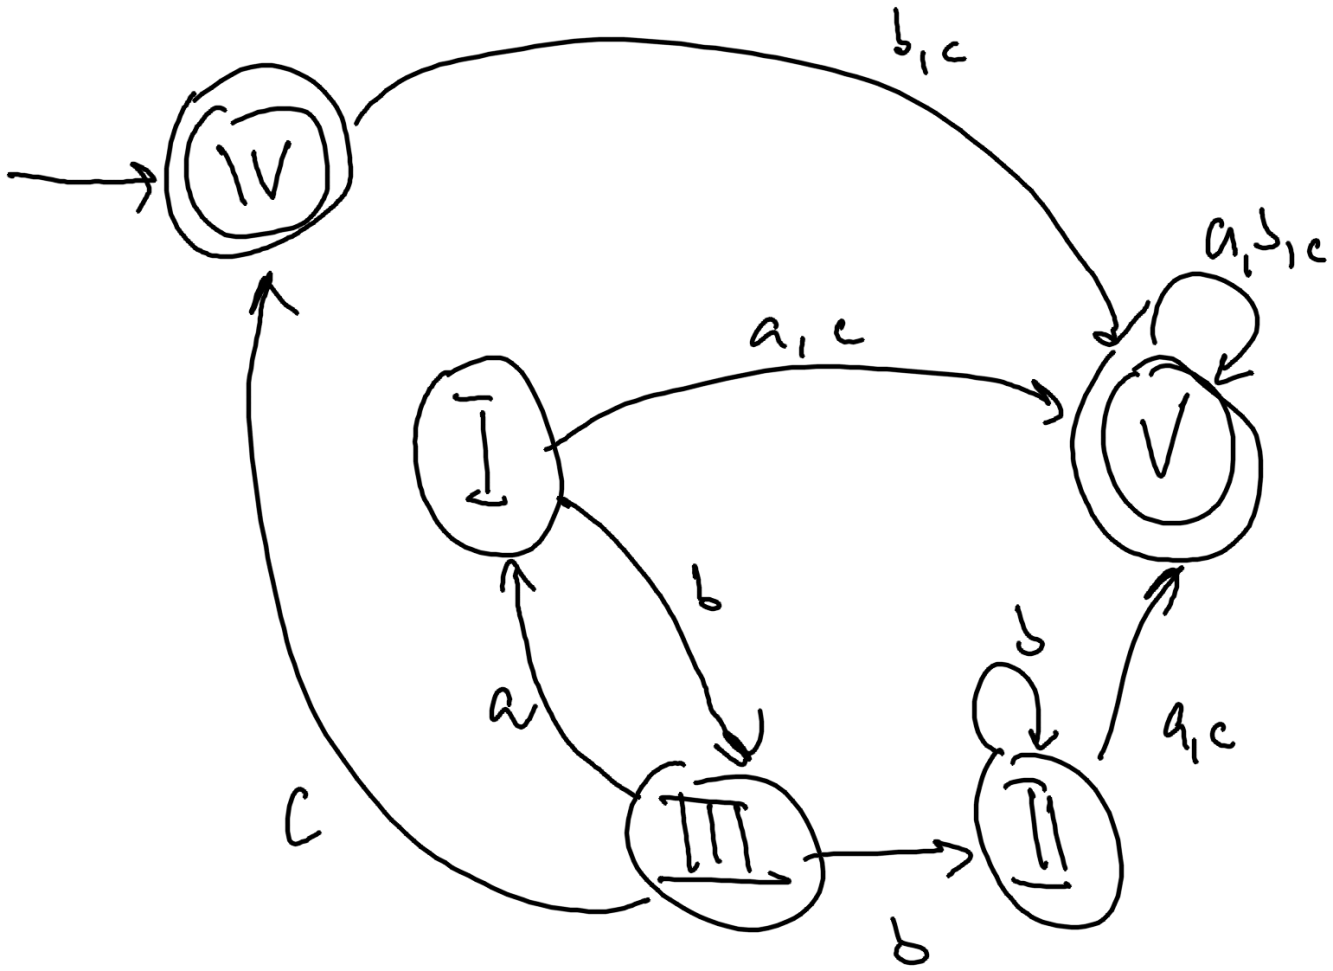 b,c
IV
a,b,c
a,c
I
V
b
b
a
a,c
c
III
II
b